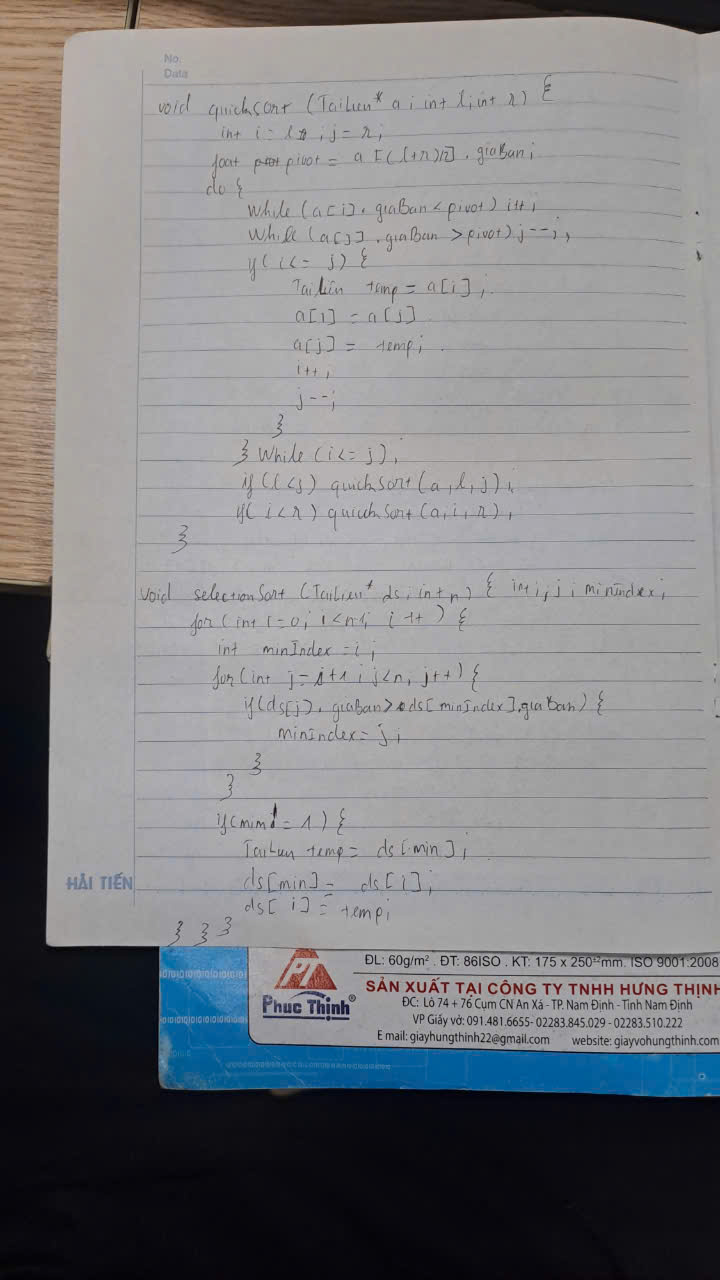 No.
Data
void quicksort (TaiLieu* a, int l, int r) {
int i = l, j = r;
float pivot = a[(l+r)/2].giaBan;
do {
While (a[i].giaBan < pivot) i++;
While (a[j].giaBan > pivot) j--;
if (i <= j) {
TaiLieu temp = a[i];
a[i] = a[j]
a[j] = temp;
i++;
j--;
}
} While (i <= j);
if (l < j) quickSort (a, l, j);
if (i < r) quickSort (a, i, r);
}
void selectionSort (TaiLieu* ds, int n) { int i, j, minIndex;
for (int i = 0; i < n-1; i++) {
int minIndex = i;
for (int j = i+1; j < n; j++) {
if (ds[j].giaBan > ds[minIndex].giaBan) {
minIndex = j;
}
}
if (min != i) {
TaiLieu temp = ds[min];
ds[min] = ds[i];
ds[i] = temp;
} } }
HẢI TIẾN
ĐL: 60g/m². ĐT: 86ISO. KT: 175 x 250±²mm. ISO 9001:2008
PT
Phuc Thinh®
SẢN XUẤT TẠI CÔNG TY TNHH HƯNG THỊNH
ĐC: Lô 74 + 76 Cụm CN An Xá - TP. Nam Định - Tỉnh Nam Định
VP Giấy vở: 091.481.6655- 02283.845.029 - 02283.510.222
E mail: giayhungthinh22@gmail.com website: giayvohungthinh.com